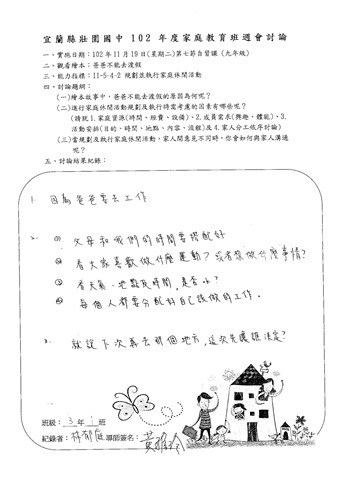 宜蘭縣壯圍國中 102 年度家庭教育班週會討論
一、實施日期：102 年 11 月 19 日(星期二)第七節自習課 (九年級)
二、觀看繪本：爸爸不能去渡假
三、能力指標：11-5-4-2 規劃並執行家庭休閒活動
四、討論題綱：
(一)繪本故事中，爸爸不能去渡假的原因為何呢？
(二)進行家庭休閒活動規劃及執行時需考慮的因素有哪些呢？
(請就 1.家庭資源(時間、經費、設備)、2.成員需求(興趣、體能)、3.
活動安排(目的、時間、地點、內容、流程)及 4.家人分工依序討論)
(三)當規劃及執行家庭休閒活動，家人間意見不同時，你會如何與家人溝通
呢？
五、討論結果紀錄：
1. 因為爸爸要去工作
2. ① 父母和我們的時間要搭配好
② 看大家喜歡做什麼運動？或者想做什麼事情？
③ 看天氣、地點及時間，是否ok？
④ 每個人都要分配好自己該做的工作。
3. 就說下次再去那個地方，這次先讓誰決定？
班級：3 年 1 班
紀錄者：林郁庭 導師簽名：黃